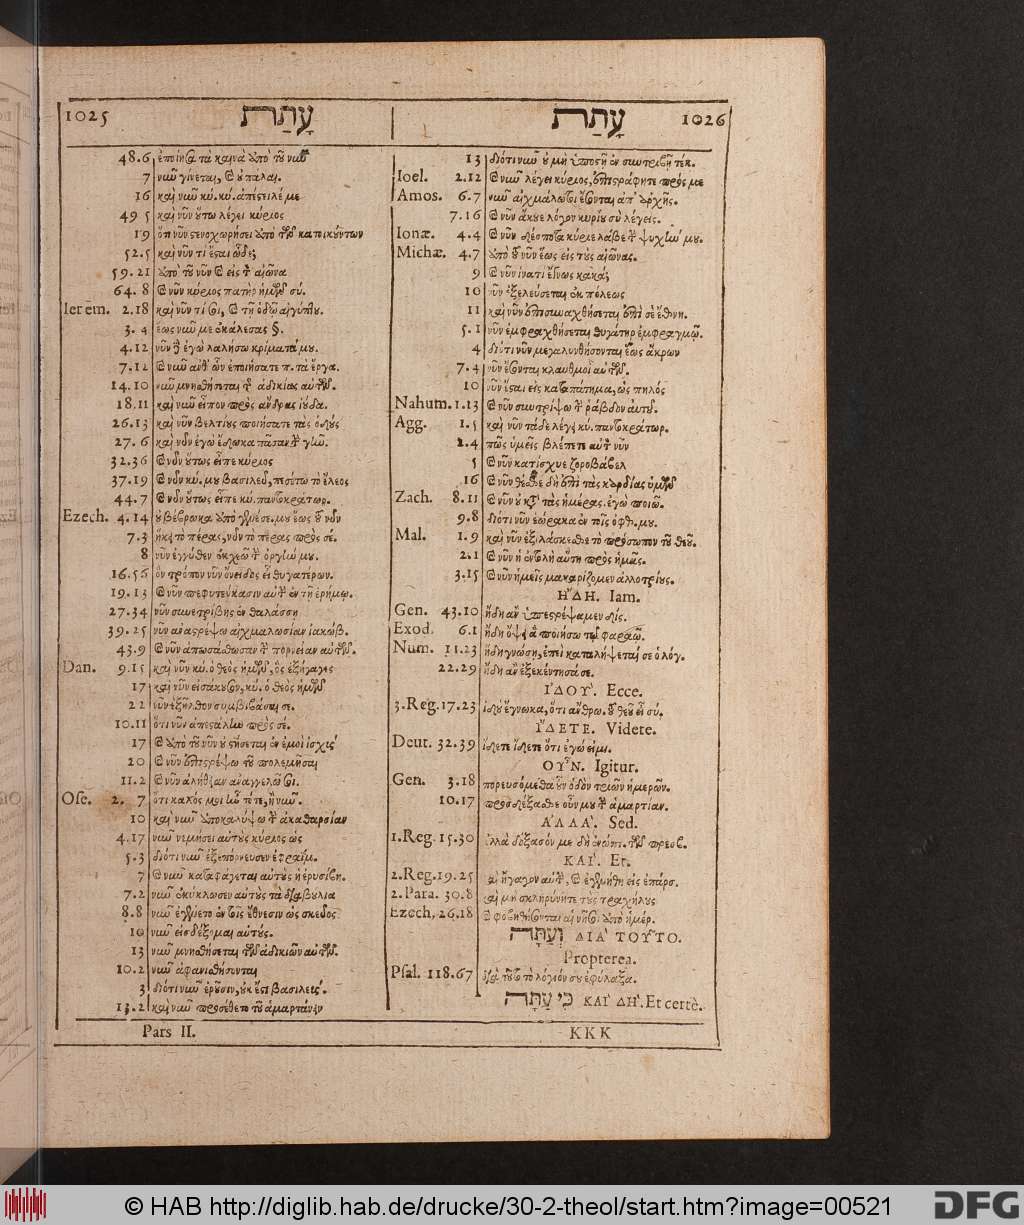 1025 עָתַת
48.6 ἐποίησα τὰ καινὰ ἀπὸ τοῦ νῦν
7 νῦν γίνεται, καὶ οὐ πάλαι.
16 καὶ νῦν κύ. κύ. ἀπέστειλέ με
49 5 καὶ νῦν οὕτω λέγει κύριος
19 ὅτι νῦν στενοχωρήσει ἀπὸ τῶν κατοικούντων
52.5 καὶ νῦν τί ἐσται ὧδε;
59.21 ἀπὸ τοῦ νῦν καὶ εἰς τὸν αἰῶνα
64.8 καὶ νῦν κύριος πατὴρ ἡμῶν σύ.
Ierem. 2.18 καὶ νῦν τί σοι, καὶ τῇ ὁδῷ αἰγύπτου.
3.4 ἕως νῦν με ἐκάλεσας §.
4.12 νῦν δὲ ἐγὼ λαλήσω κρίματά μου.
7.12 καὶ νῦν ἀνθ' ὧν ἐποιήσατε π. τὰ ἔργα.
14.10 νῦν μνησθήσεται τῶν ἀδικίας αὐτῶν.
18.11 καὶ νῦν εἶπον πρὸς ἄνδρας ἰούδα.
26.13 καὶ νῦν βελτίους ποιήσατε τὰς ὁδούς
27.6 καὶ νῦν ἐγὼ ἔδωκα πᾶσαν τὴν γῆν.
32.36 καὶ νῦν οὕτως εἶπε κύριος
37.19 καὶ νῦν κύ. μου βασιλεῦ, πεσέτω τὸ ἔλεος
44.7 καὶ νῦν οὕτως εἶπε κύ. παντοκράτωρ.
Ezech. 4.14 οὐ βέβρωκα ἀπὸ γενέσε. μου ἕως τοῦ νῦν
7.3 ἥκει τὸ πέρας, νῦν τὸ πέρας πρὸς σέ.
8 νῦν ἐγγύθεν ἐκχεῶ τὴν ὀργήν μου.
16.56 ὃν τρόπον νῦν ὄνειδος εἶ θυγατέρων.
19.13 καὶ νῦν πεφύτευκασιν αὐτὴν ἐν τῇ ἐρήμῳ.
27.34 νῦν συνετρίβης ἐν θαλάσσῃ
39.25 νῦν ἀποστρέψω αἰχμαλωσίαν ἰακώβ.
43.9 καὶ νῦν ἀπωσάσθωσαν τὴν πορνείαν αὐτῶν.
Dan. 9.15 καὶ νῦν κύ. ὁ θεὸς ἡμῶν, ὃς ἐξήγαγες
17 καὶ νῦν εἰσάκουσον, κύ. ὁ θεὸς ἡμῶν
22 νῦν ἐξῆλθον συμβιβάσαι σε.
10.11 ὅτι νῦν ἀπεστάλην πρὸς σέ.
17 καὶ ἀπὸ τοῦ νῦν οὐ στήσεται ἐν ἐμοὶ ἰσχύς
20 καὶ νῦν ἐπιστρέψω τοῦ πολεμῆσαι
11.2 καὶ νῦν ἀλήθειαν ἀναγγελῶ σοι.
Ose. 2.7 ὅτι καλῶς μοι ἦν τότε, ἢ νῦν.
10 καὶ νῦν ἀποκαλύψω τὴν ἀκαθαρσίαν
4.17 νῦν νεμήσει αὐτοὺς κύριος ὡς
5.3 διότι νῦν ἐξεπόρνευσεν ἐφραΐμ.
7 καὶ νῦν καταφάγεται αὐτοὺς ἡ ἐρυσίβη.
7.2 νῦν ἐκύκλωσεν αὐτοὺς τὰ διαβούλια
8.8 νῦν ἐγένετο ἐν τοῖς ἔθνεσιν ὡς σκεῦος
10 νῦν εἰσδέξομαι αὐτούς.
13 νῦν μνησθήσεται τῶν ἀδικιῶν αὐτῶν.
10.2 νῦν ἀφανισθήσονται
3 διότι νῦν ἐροῦσιν, οὐκ ἔστι βασιλεύς.
13.2 καὶ νῦν προσέθετο τοῦ ἁμαρτάνειν
Pars II.
עָתַת 1026
13 διότι νῦν οὐ μὴ ὑποστῇ ἐν συντριβῇ τέκ.
Ioel. 2.12 καὶ νῦν λέγει κύριος, ἐπιστράφητε πρὸς με
Amos. 6.7 νῦν αἰχμάλωτοι ἔσονται ἀπ' ἀρχῆς.
7.16 καὶ νῦν ἄκουε λόγον κυρίου σὺ λέγεις.
Ionæ. 4.4 καὶ νῦν δέσποτα κύριε λάβε τὴν ψυχήν μου.
Michæ. 4.7 ἀπὸ τοῦ νῦν ἕως εἰς τοὺς αἰῶνας.
9 καὶ νῦν ἱνατί ἔγνως κακά;
10 νῦν ἐξελεύσεται ἐκ πόλεως
11 καὶ νῦν ἐπισυναχθήσεται ἐπὶ σὲ ἔθνη.
5.1 νῦν ἐμφραχθήσεται θυγάτηρ ἐμφραγμῷ.
4 διότι νῦν μεγαλυνθήσονται ἕως ἄκρων
7.4 νῦν ἔσονται κλαυθμοὶ αὐτῶν.
10 νῦν ἔσται εἰς καταπάτημα, ὡς πηλός
Nahum. 1.13 καὶ νῦν συντρίψω τὴν ῥάβδον αὐτοῦ.
Agg. 1.5 καὶ νῦν τάδε λέγει κύ. παντοκράτωρ.
2.4 πῶς ὑμεῖς βλέπετε αὐτὸν νῦν
5 καὶ νῦν κατίσχυε ζοροβάβελ
16 καὶ νῦν θέσθε δὴ ἐπὶ τὰς καρδίας ὑμῶν
Zach. 8.11 καὶ νῦν οὐ κατὰ τὰς ἡμέρας. ἐγὼ ποιῶ.
9.8 διότι νῦν ἑώρακα ἐν τοῖς ὀφθ. μου.
Mal. 1.9 καὶ νῦν ἐξιλάσκεσθε τὸ πρόσωπον τοῦ θεοῦ.
2.1 καὶ νῦν ἡ ἐντολὴ αὕτη πρὸς ἡμᾶς.
3.15 καὶ νῦν ἡμεῖς μακαρίζομεν ἀλλοτρίους.
ἬΔΗ. Iam.
Gen. 43.10 ἤδη ἂν ὑπεστρέψαμεν δίς.
Exod. 6.1 ἤδη ὄψει ἃ ποιήσω τῷ φαραῷ.
Num. 11.23 ἤδη γνώσῃ, ἐπεὶ καταλήψεταί σε ὁ λόγ.
22.29 ἤδη ἂν ἐξεκέντησά σε.
ἸΔΟΥ'. Ecce.
3.Reg. 17.23 ἰδοὺ ἔγνωκα, ὅτι ἄνθρω. τοῦ θεοῦ εἶ σύ.
ἼΔΕΤΕ. Videte.
Deut. 32.39 ἴδετε ἴδετε ὅτι ἐγώ εἰμι.
ΟΥ͂Ν. Igitur.
Gen. 3.18 πορευσόμεθα οὖν ὁδὸν τριῶν ἡμερῶν.
10.17 προσδέξασθε οὖν μου τὴν ἁμαρτίαν.
ἈΛΛΑ'. Sed.
1.Reg. 15.30 ἀλλὰ δόξασόν με δὴ ἐνώπι. τῶν πρεσβ.
ΚΑΙ'. Et.
2.Reg. 19.25 καὶ ἤγαγον αὐτὴν, καὶ ἐγενήθη εἰς ἐπάρσ.
2.Para. 30.8 καὶ μὴ σκληρύνητε τοὺς τραχήλους
Ezech. 26.18 καὶ φοβηθήσονται αἱ νῆσοι ἀπὸ ἡμέρ.
וְעַתָּה ΔΙΑ' ΤΟΥ͂ΤΟ.
Propterea.
Psal. 118.67 διὰ τοῦτο τὸ λόγιόν σου ἐφύλαξα.
כִּי עַתָּה ΚΑΙ' ΔΗ'. Et certè.
KKK
© HAB http://diglib.hab.de/drucke/30-2-theol/start.htm?image=00521
DFG